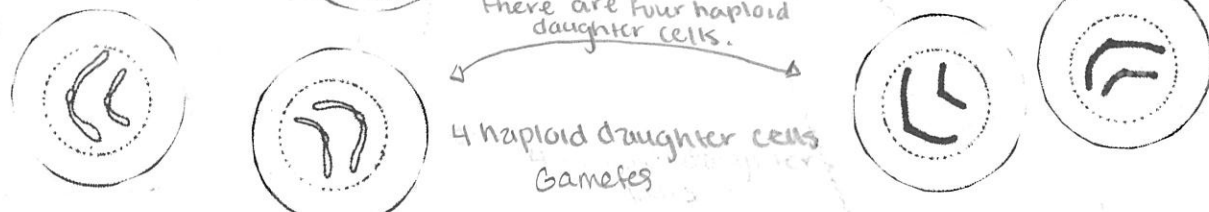 there are four haploid
daughter cells.
4 haploid daughter cells
Gametes